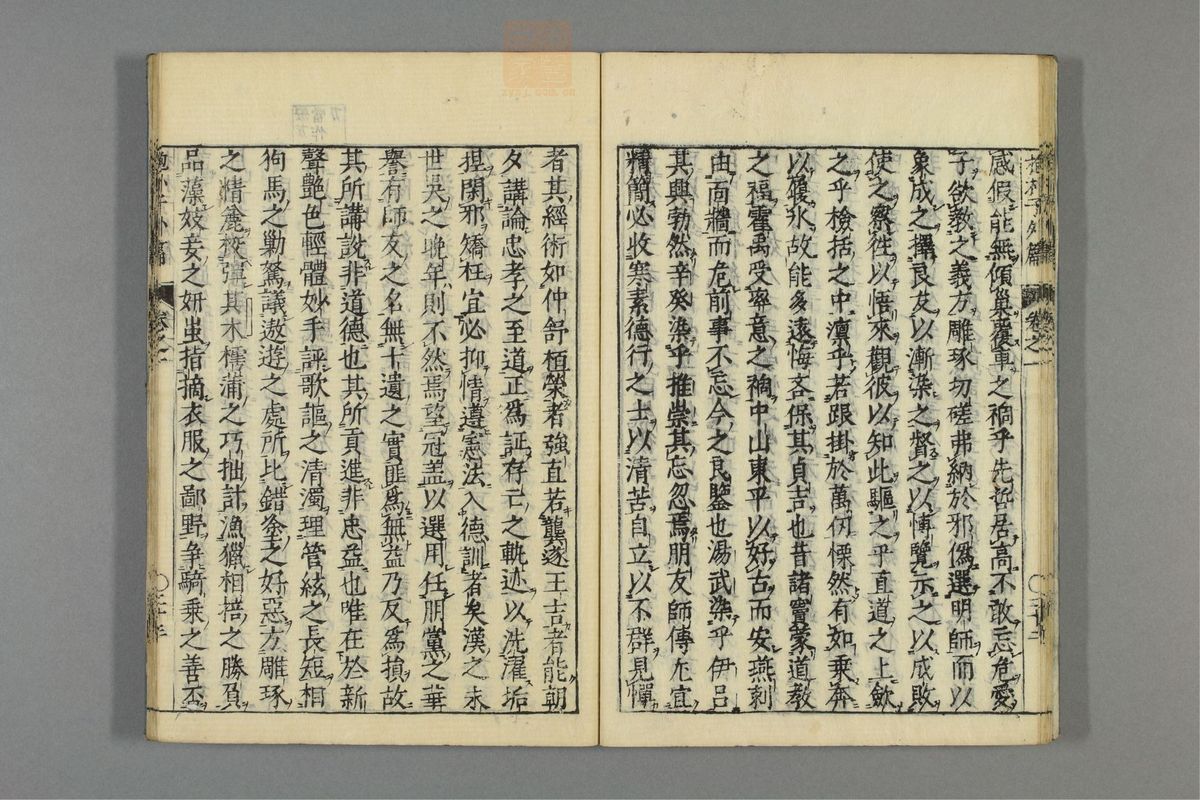 感假能無傾巢覆車之禍乎先哲居高不敢忘危愛
子欲教之義方雕琢切磋弗納於邪僞選明師而以
象成之擇良友以漸染之督之以博覽示之以成敗
使之察徃以悟來觀彼以知此驅之乎直道之上歛
之乎檢括之中凛乎若跟掛於萬仞慄然有如乗奔
以履氷故能多遠悔吝保其貞吉也昔諸竇蒙道教
之福霍禹受率意之禍中山東平以好古而安燕剌
由面牆而危前事不忘今之良鑒也湯武染乎伊呂
其興勃然辛癸染乎推崇其忘忽焉朋友師傳尤宜
精簡必收寒素德行之士以清苦自立以不群見憚
者其經術如仲舒桓榮者強直若龔遂王吉者能朝
夕講論忠孝之至道正爲証存亡之軌迹以洗濯垢
捏閑邪矯枉宜必抑情遵憲法入德訓者矣漢之末
世吴之晚年則不然焉望冠盖以選用任朋黨之華
譽有師友之名無十遺之實匪爲無益乃反爲損故
其所講説非道德也其所貢進非忠益也唯在於新
聲艷色輕體妙手評歌謳之清濁理管絃之長短相
狗馬之勦駑議遨遊之處所比錯釜之好惡方雕琢
之精麁校彈其木樗蒲之巧拙計漁獵相掊之勝負
品藻妓妾之妍蚩指摘衣服之鄙野争騎乗之善否